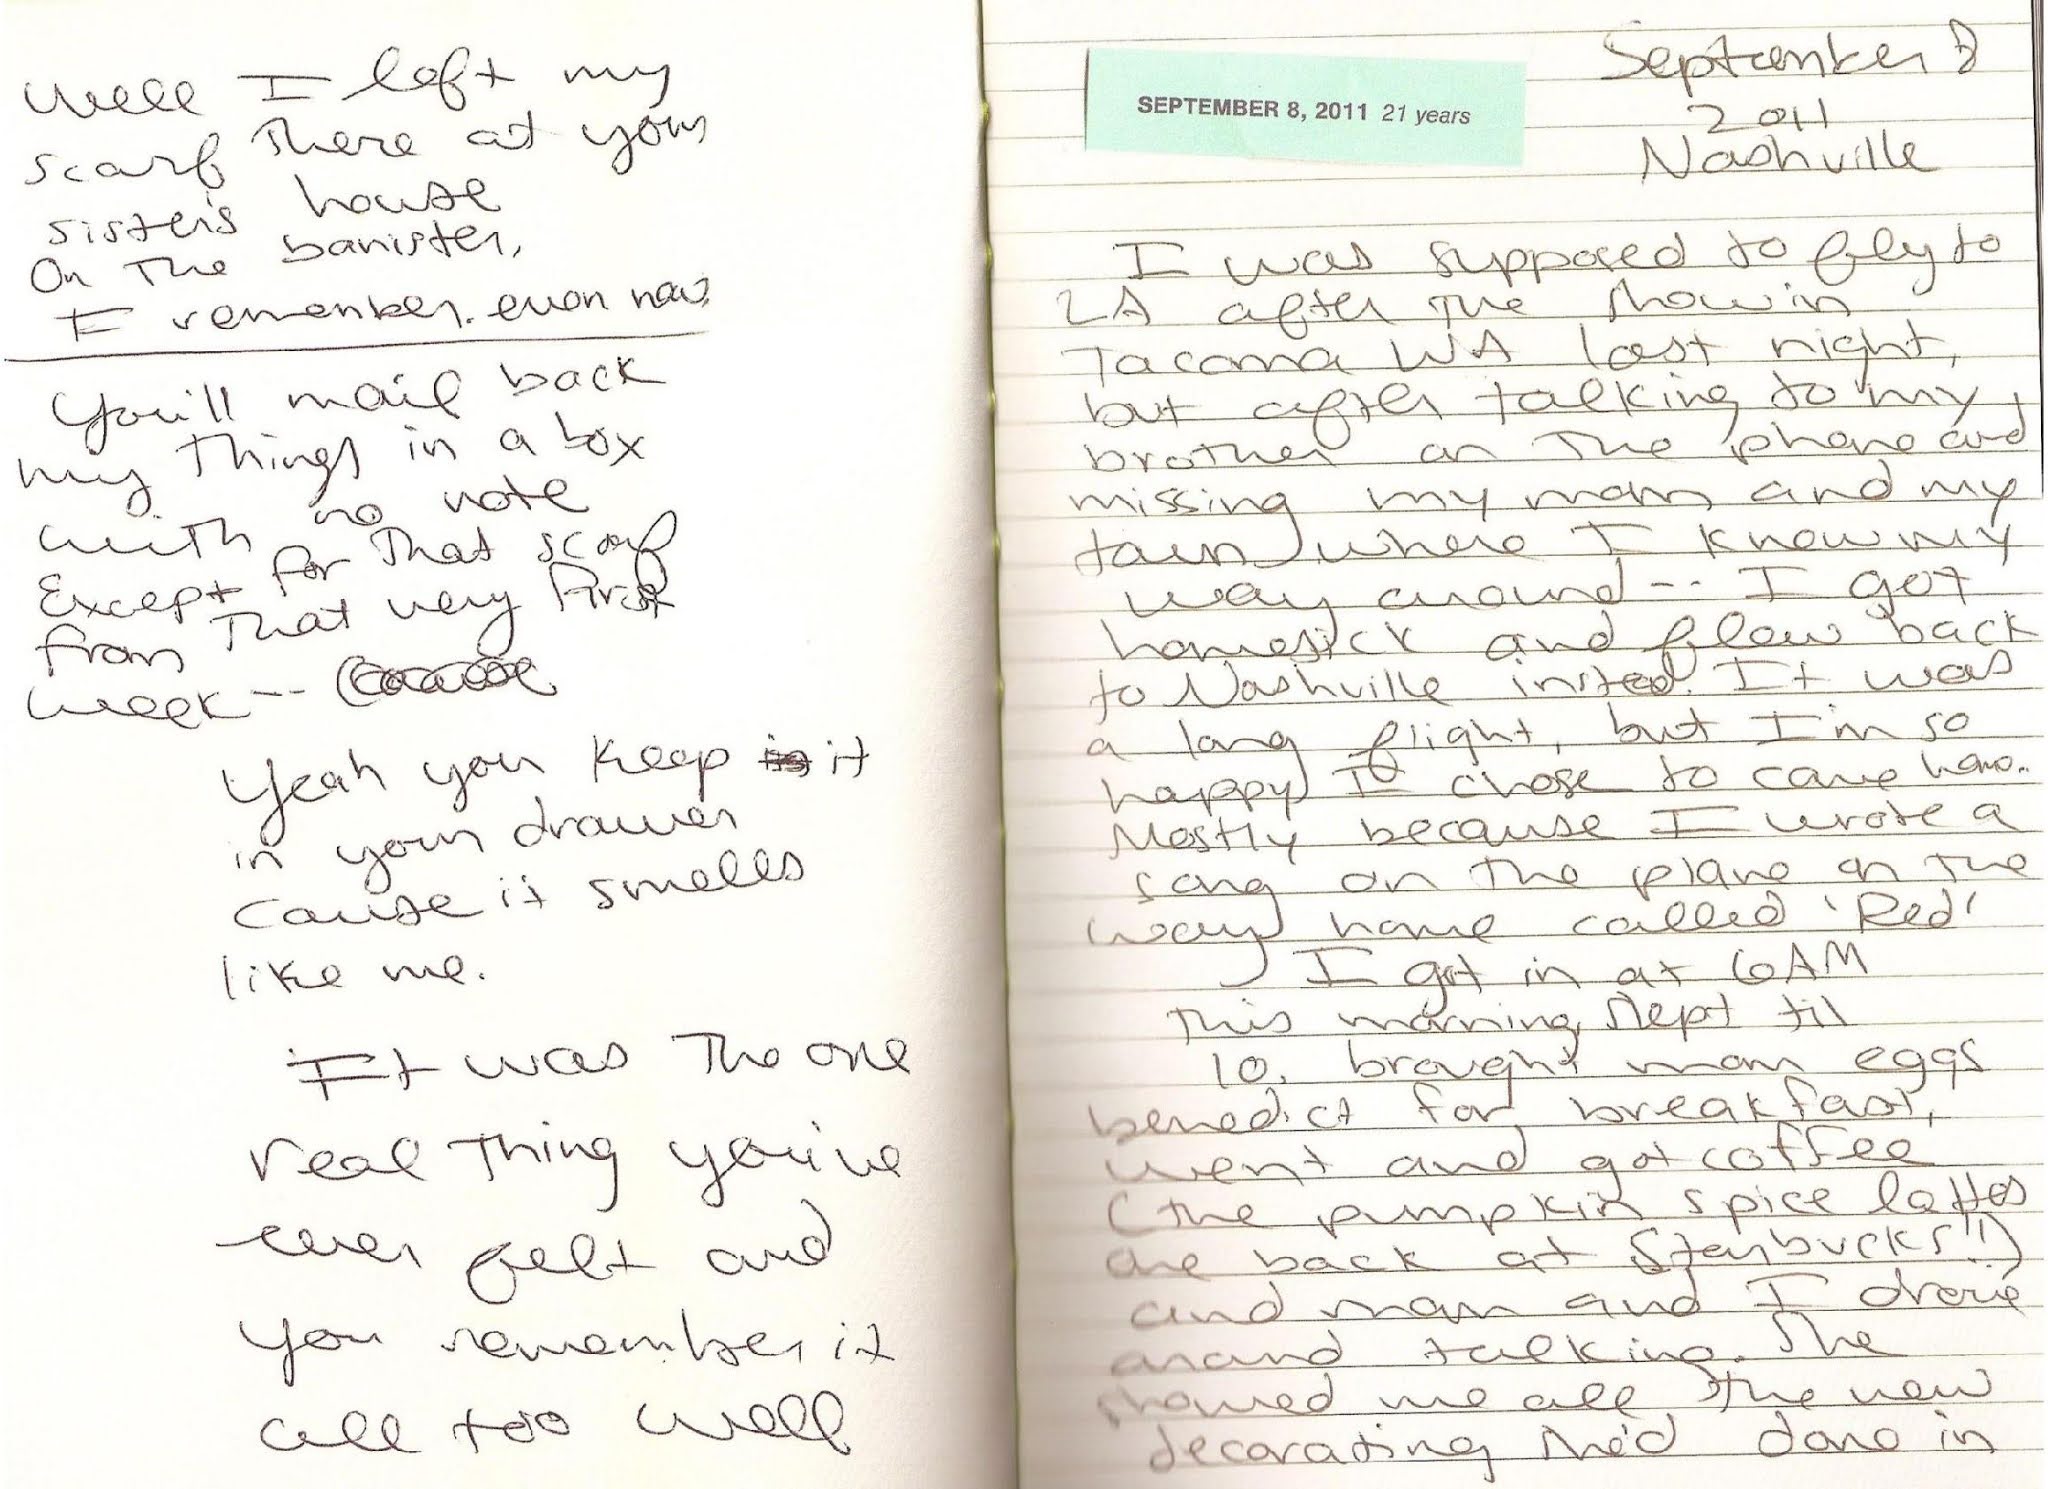 Well I left my
scarf there at your
sister's house
On the banister,
I remember. even now.
You'll mail back
my things in a box
with no note
Except for that scarf
from that very first
week --
Yeah you keep it
in your drawer
Cause it smells
like me.
It was the one
real thing you've
ever felt and
you remember it
all too well
SEPTEMBER 8, 2011 21 years
September 8
2011
Nashville
I was supposed to fly to
LA after the show in
Tacoma WA last night,
but after talking to my
brother on the phone and
missing my mom, and my
town where I know my
way around -- I got
homesick and flew back
to Nashville instead. It was
a long flight, but I'm so
happy I chose to come home.
Mostly because I wrote a
song on the plane on the
way home called 'Red'
I got in at 6AM
this morning, slept til
10, brought mom eggs
benedict for breakfast,
went and got coffee
(the pumpkin spice lattes
are back at Starbucks!!)
and mom and I drove
around talking. She
showed me all the new
decorating she'd done in